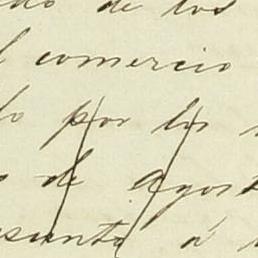 do de los
l comercio
do por los
o de Agost
esunto á